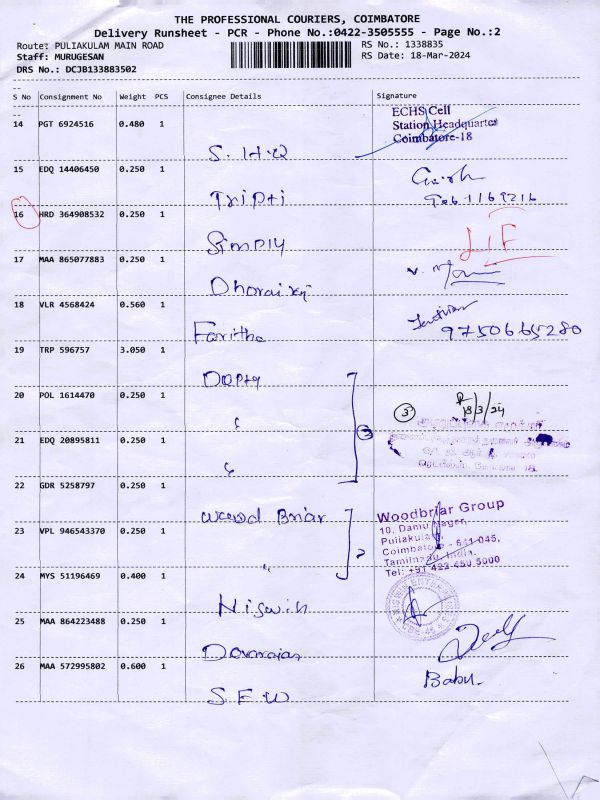 THE PROFESSIONAL COURIERS, COIMBATORE
Delivery Runsheet - PCR - Phone No.:0422-3505555 - Page No.:2
Route: PULIAKULAM MAIN ROAD
RS No.: 1338835
Staff: MURUGESAN
RS Date: 18-Mar-2024
DRS No.: DCJB133883502
S No Consignment No Weight PCS Consignee Details Signature
14 PGT 6924516 0.480 1
ECHS Cell
Station Headquarter
Coimbatore-18
S. H. Q
15 EDQ 14406450 0.250 1
Tripti
16 HRD 364908532 0.250 1
Simply
LIF
17 MAA 865077883 0.250 1
18 VLR 4568424 0.560 1
Faritha
9750665280
19 TRP 596757 3.050 1
20 POL 1614470 0.250 1
3
18/3/24
21 EDQ 20895811 0.250 1
3
22 GDR 5258797 0.250 1
Wood Briar
Woodbriar Group
23 VPL 946543370 0.250 1
10, Damu Nagar,
Puliakulam
Coimbatore - 641 045,
Tamilnadu, India.
Tel: +91 422 450 5000
2
24 MYS 51196469 0.400 1
25 MAA 864223488 0.250 1
26 MAA 572995802 0.600 1
Babu.
S E W